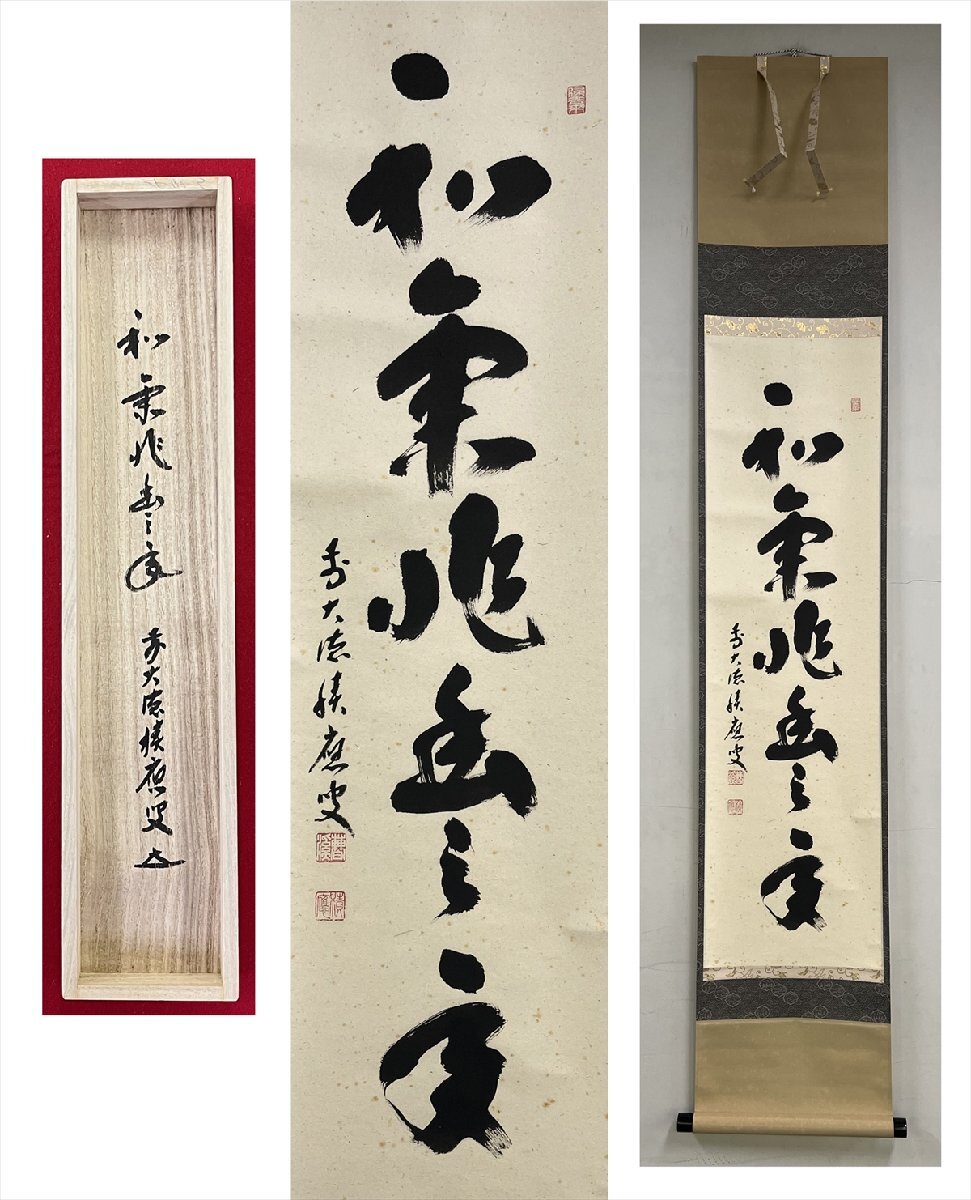 和氣兆豐年
前大徳積應叟
和氣兆豐年
前大徳積應叟
和氣兆豐年
前大徳積應叟